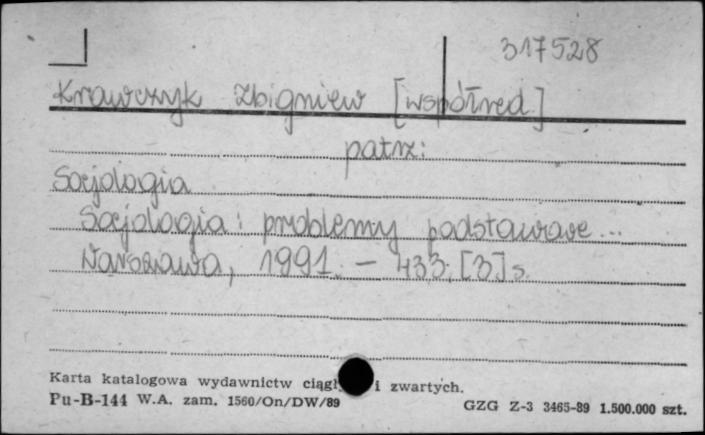 317528
Krawczyk Zbigniew [współred.]
patrz:
Socjologia
Socjologia : problemy podstawowe...
Warszawa, 1991. - 433, [3] s.
Karta katalogowa wydawnictw ciągł i zwartych.
Pu-B-144 W.A. zam. 1560/On/DW/89
GZG Z-3 3465-89 1.500.000 szt.